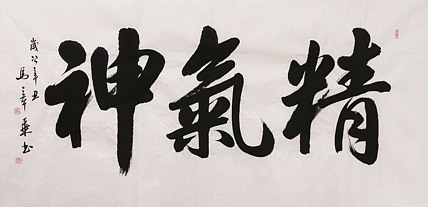 精氣神
歲次辛丑
馬章乘書